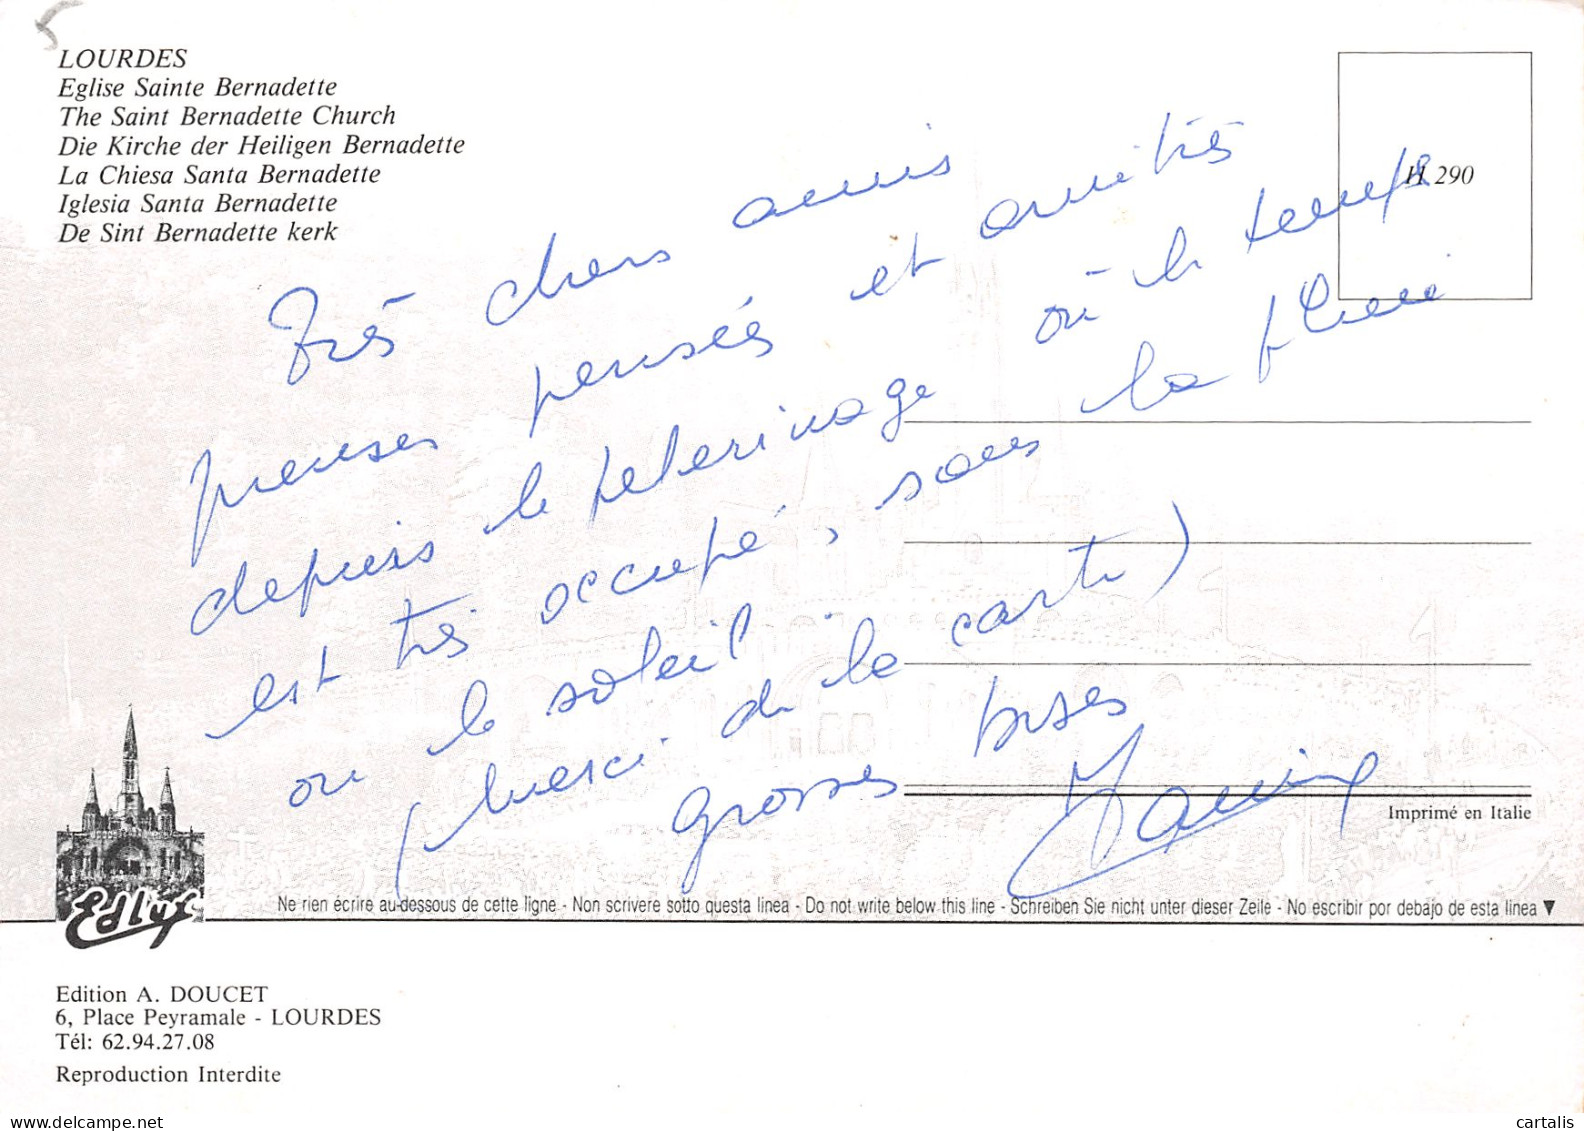 LOURDES
Eglise Sainte Bernadette
The Saint Bernadette Church
Die Kirche der Heiligen Bernadette
La Chiesa Santa Bernadette
Iglesia Santa Bernadette
De Sint Bernadette kerk
H 290
Très chers amis
pensées et amitiés
depuis le pelerinage où le temps
est très occupé, sous la pluie
ou le soleil
(merci de la carte)
grosses bises
Imprimé en Italie
Edlys
Ne rien écrire au-dessous de cette ligne - Non scrivere sotto questa linea - Do not write below this line - Schreiben Sie nicht unter dieser Zeile - No escribir por debajo de esta linea ▼
Edition A. DOUCET
6, Place Peyramale - LOURDES
Tél: 62.94.27.08
Reproduction Interdite
cartalis